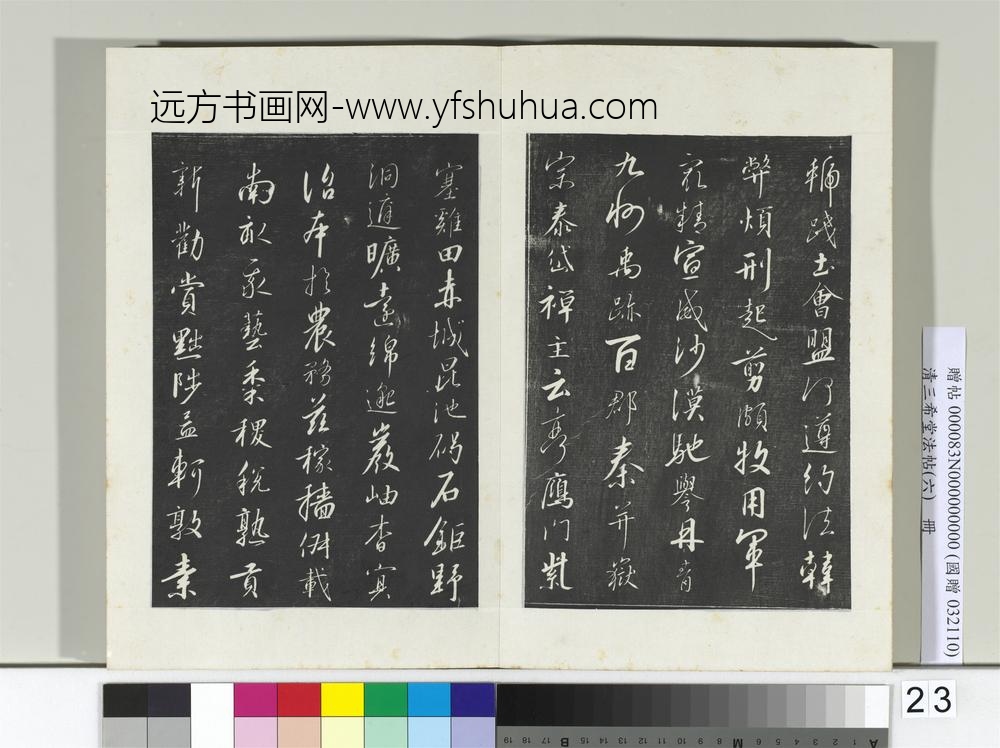 远方书画网-www.yfshuhua.com
虢踐土會盟何遵約法韓
弊煩刑起剪頗牧用軍
最精宣威沙漠馳譽丹青
九州禹跡百郡秦并嶽
宗泰岱禪主云亭鴈門紫
塞雞田赤城昆池碣石鉅野
洞庭曠遠綿邈巖岫杳冥
治本於農務茲稼穡俶載
南畝我藝黍稷稅熟貢
新勸賞黜陟孟軻敦素
贈帖 000083N000000000 (國贈 032110)
清三希堂法帖(六) 冊
23